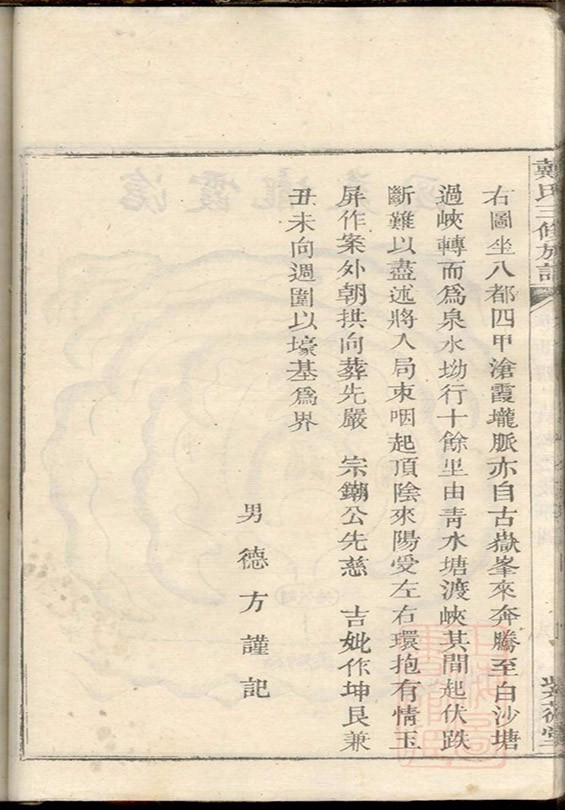 戴氏三修族譜
紫薇堂
右圖坐八都四甲滄霞壠脈亦自古嶽峯來奔騰至白沙塘
過峽轉而爲泉水坳行十餘里由青水塘渡峽其間起伏跌
斷難以盡述將入局束咽起頂陰來陽受左右環抱有情玉
屏作案外朝拱向葬先嚴 宗鐗公先慈 吉妣作坤艮兼
丑未向週圍以壕基爲界
男德方謹記